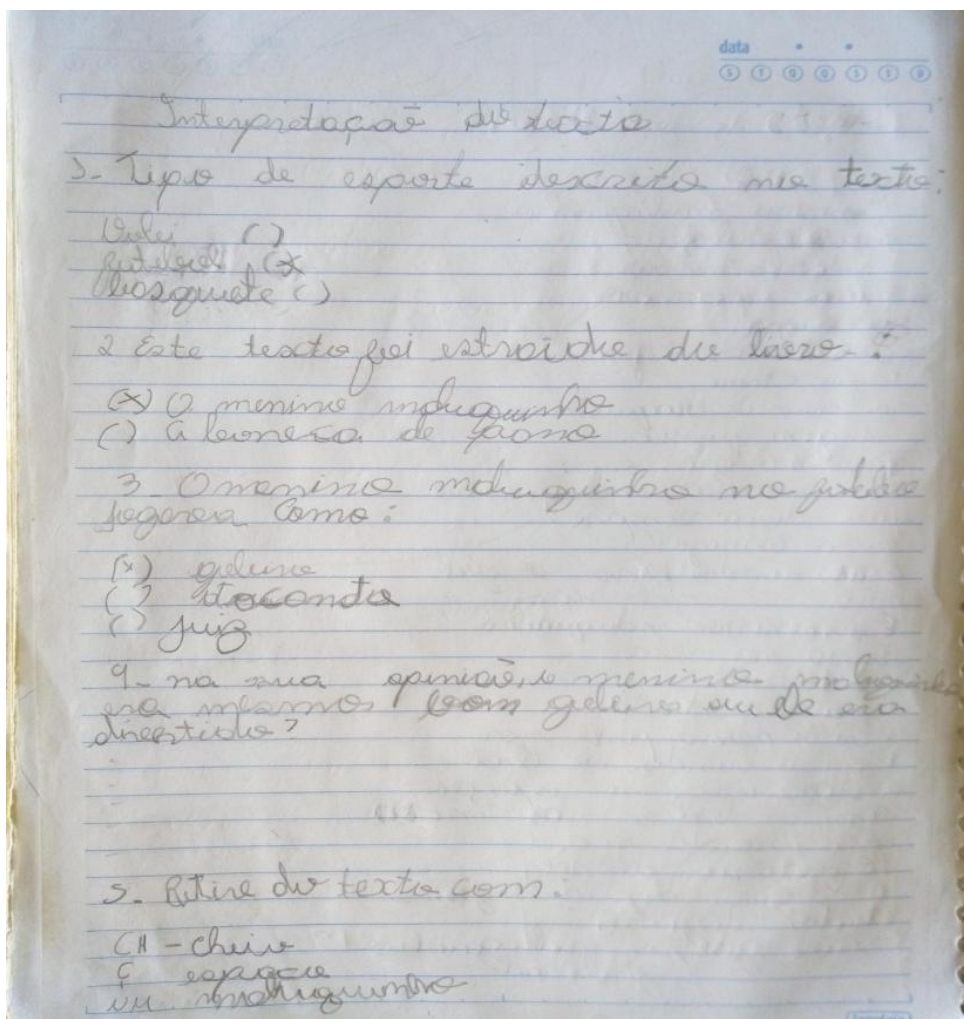 data
S T Q Q S S D
Interpretação do texto
1- Tipo de esporte descrito no texto:
Volei ( )
futebol (x
basquete ( )
2 Este texto foi estraido do livro- :
(x) O menino maluquinho
( ) A boneca de pano
3- O menino maluquinho no futebol
jogava como:
(x) goleiro
( ) atacante
( ) juiz
4- na sua opinião, o menino maluquinho
era mesmo bom goleiro ou ele era
divertido?
5- Retire do texto com:
CH - cheio
Ç espaço
NH maluquinho